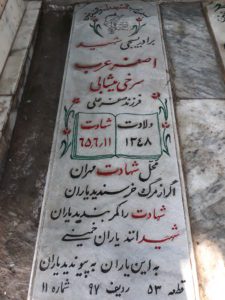 برادر بسیجی شهید
اصغر عرب
سرخی میشابی
فرزند صفر علی
ولادت شهادت
۱۳۴۸ ۶۵/۶/۱۱
محل شهادت مهران
اگر از مرگ خرسندید یاران
شهادت را کمر بندید یاران
شهید انند یاران خمینی
به این یاران به پیوندید یاران
قطعه ۵۳ ردیف ۹۷ شماره ۱۱